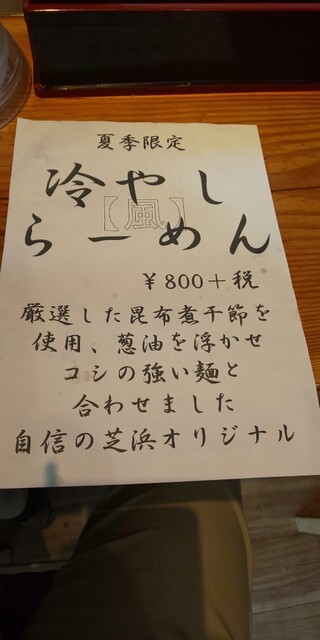 夏季限定
冷やし
【風】
らーめん
￥800＋税
厳選した昆布煮干節を
使用、葱油を浮かせ
コシの強い麺と
合わせました
自信の芝浜オリジナル